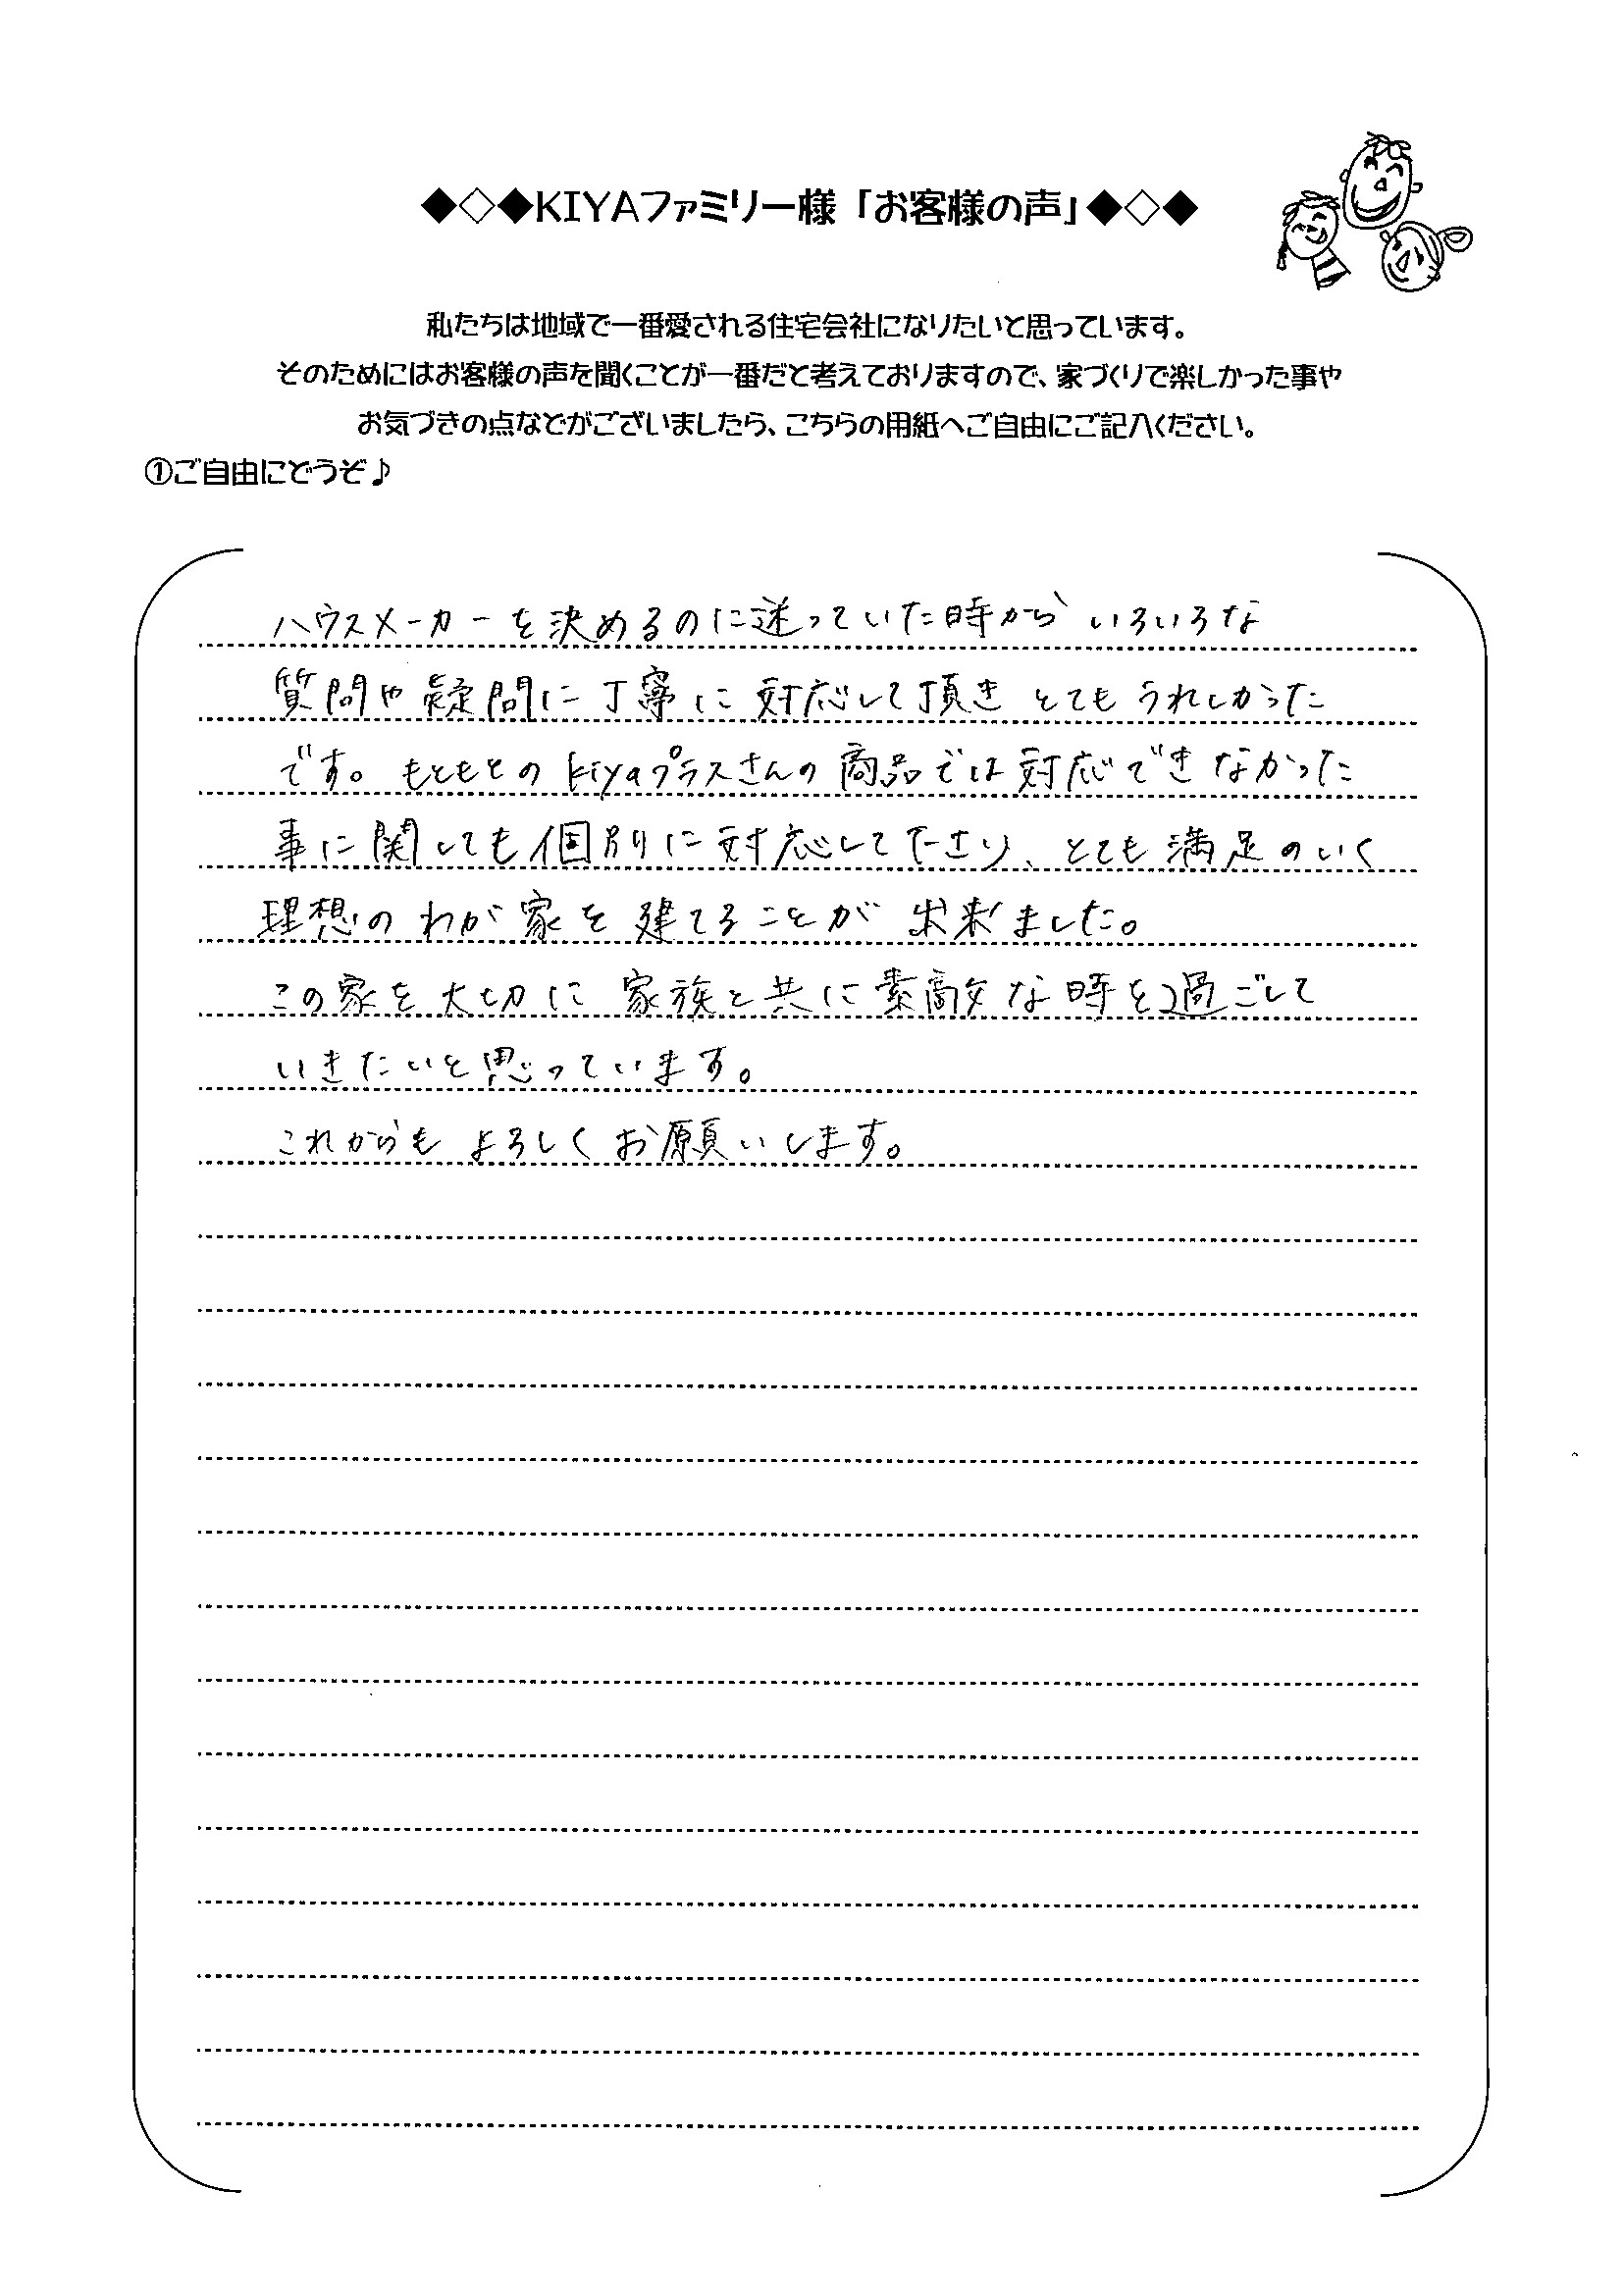 ◆◇◆KIYAファミリー様「お客様の声」◆◇◆
私たちは地域で一番愛される住宅会社になりたいと思っています。
そのためにはお客様の声を聞くことが一番だと考えておりますので、家づくりで楽しかった事や
お気づきの点などがございましたら、こちらの用紙へご自由にご記入ください。
①ご自由にどうぞ♪
ハウスメーカーを決めるのに迷っていた時からいろいろな
質問や疑問に丁寧に対応して頂きとてもうれしかった
です。もともとのkiyaプラスさんの商品では対応できなかった
事に関しても個別に対応して下さり、とても満足のいく
理想のわが家を建てることが出来ました。
この家を大切に家族と共に素敵な時を過ごして
いきたいと思っています。
これからもよろしくお願いします。